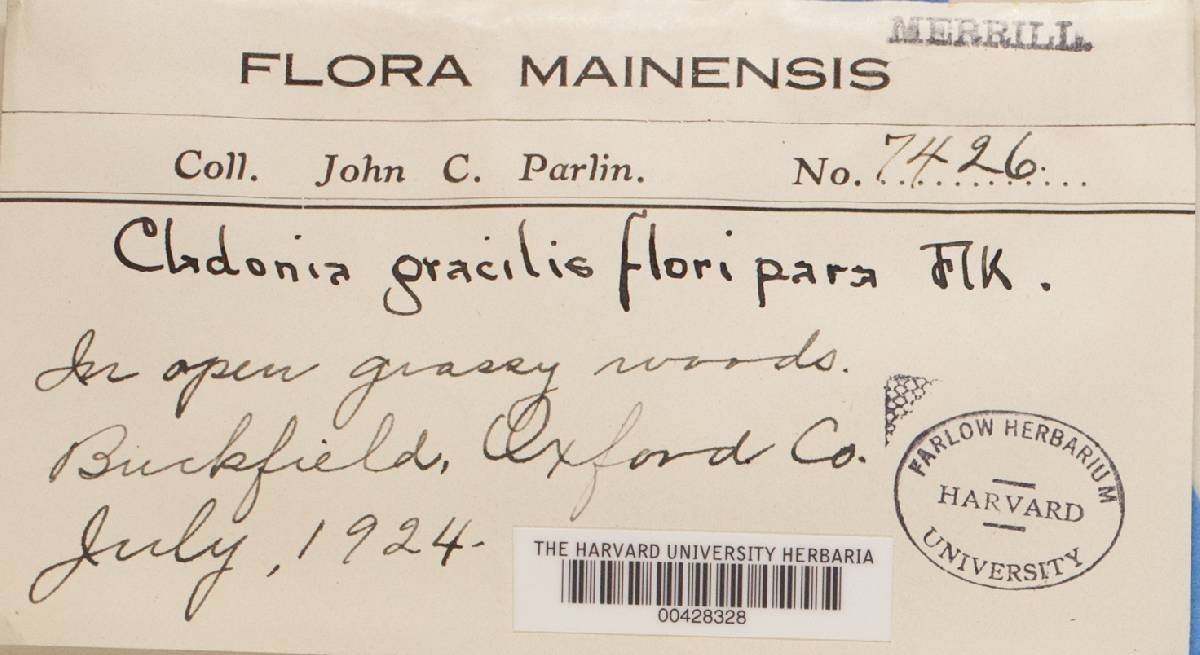 MERRILL.
FLORA MAINENSIS
Coll. John C. Parlin. No. 7426.
Cladonia gracilis floripara Flk.
In open grassy woods.
Buckfield, Oxford Co.
July, 1924.
FARLOW HERBARIUM
HARVARD
UNIVERSITY
THE HARVARD UNIVERSITY HERBARIA
00428328